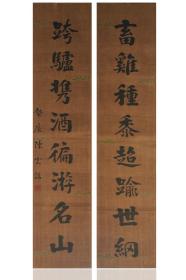 畜雞種黍超踰世網
跨驢攜酒徧游名山